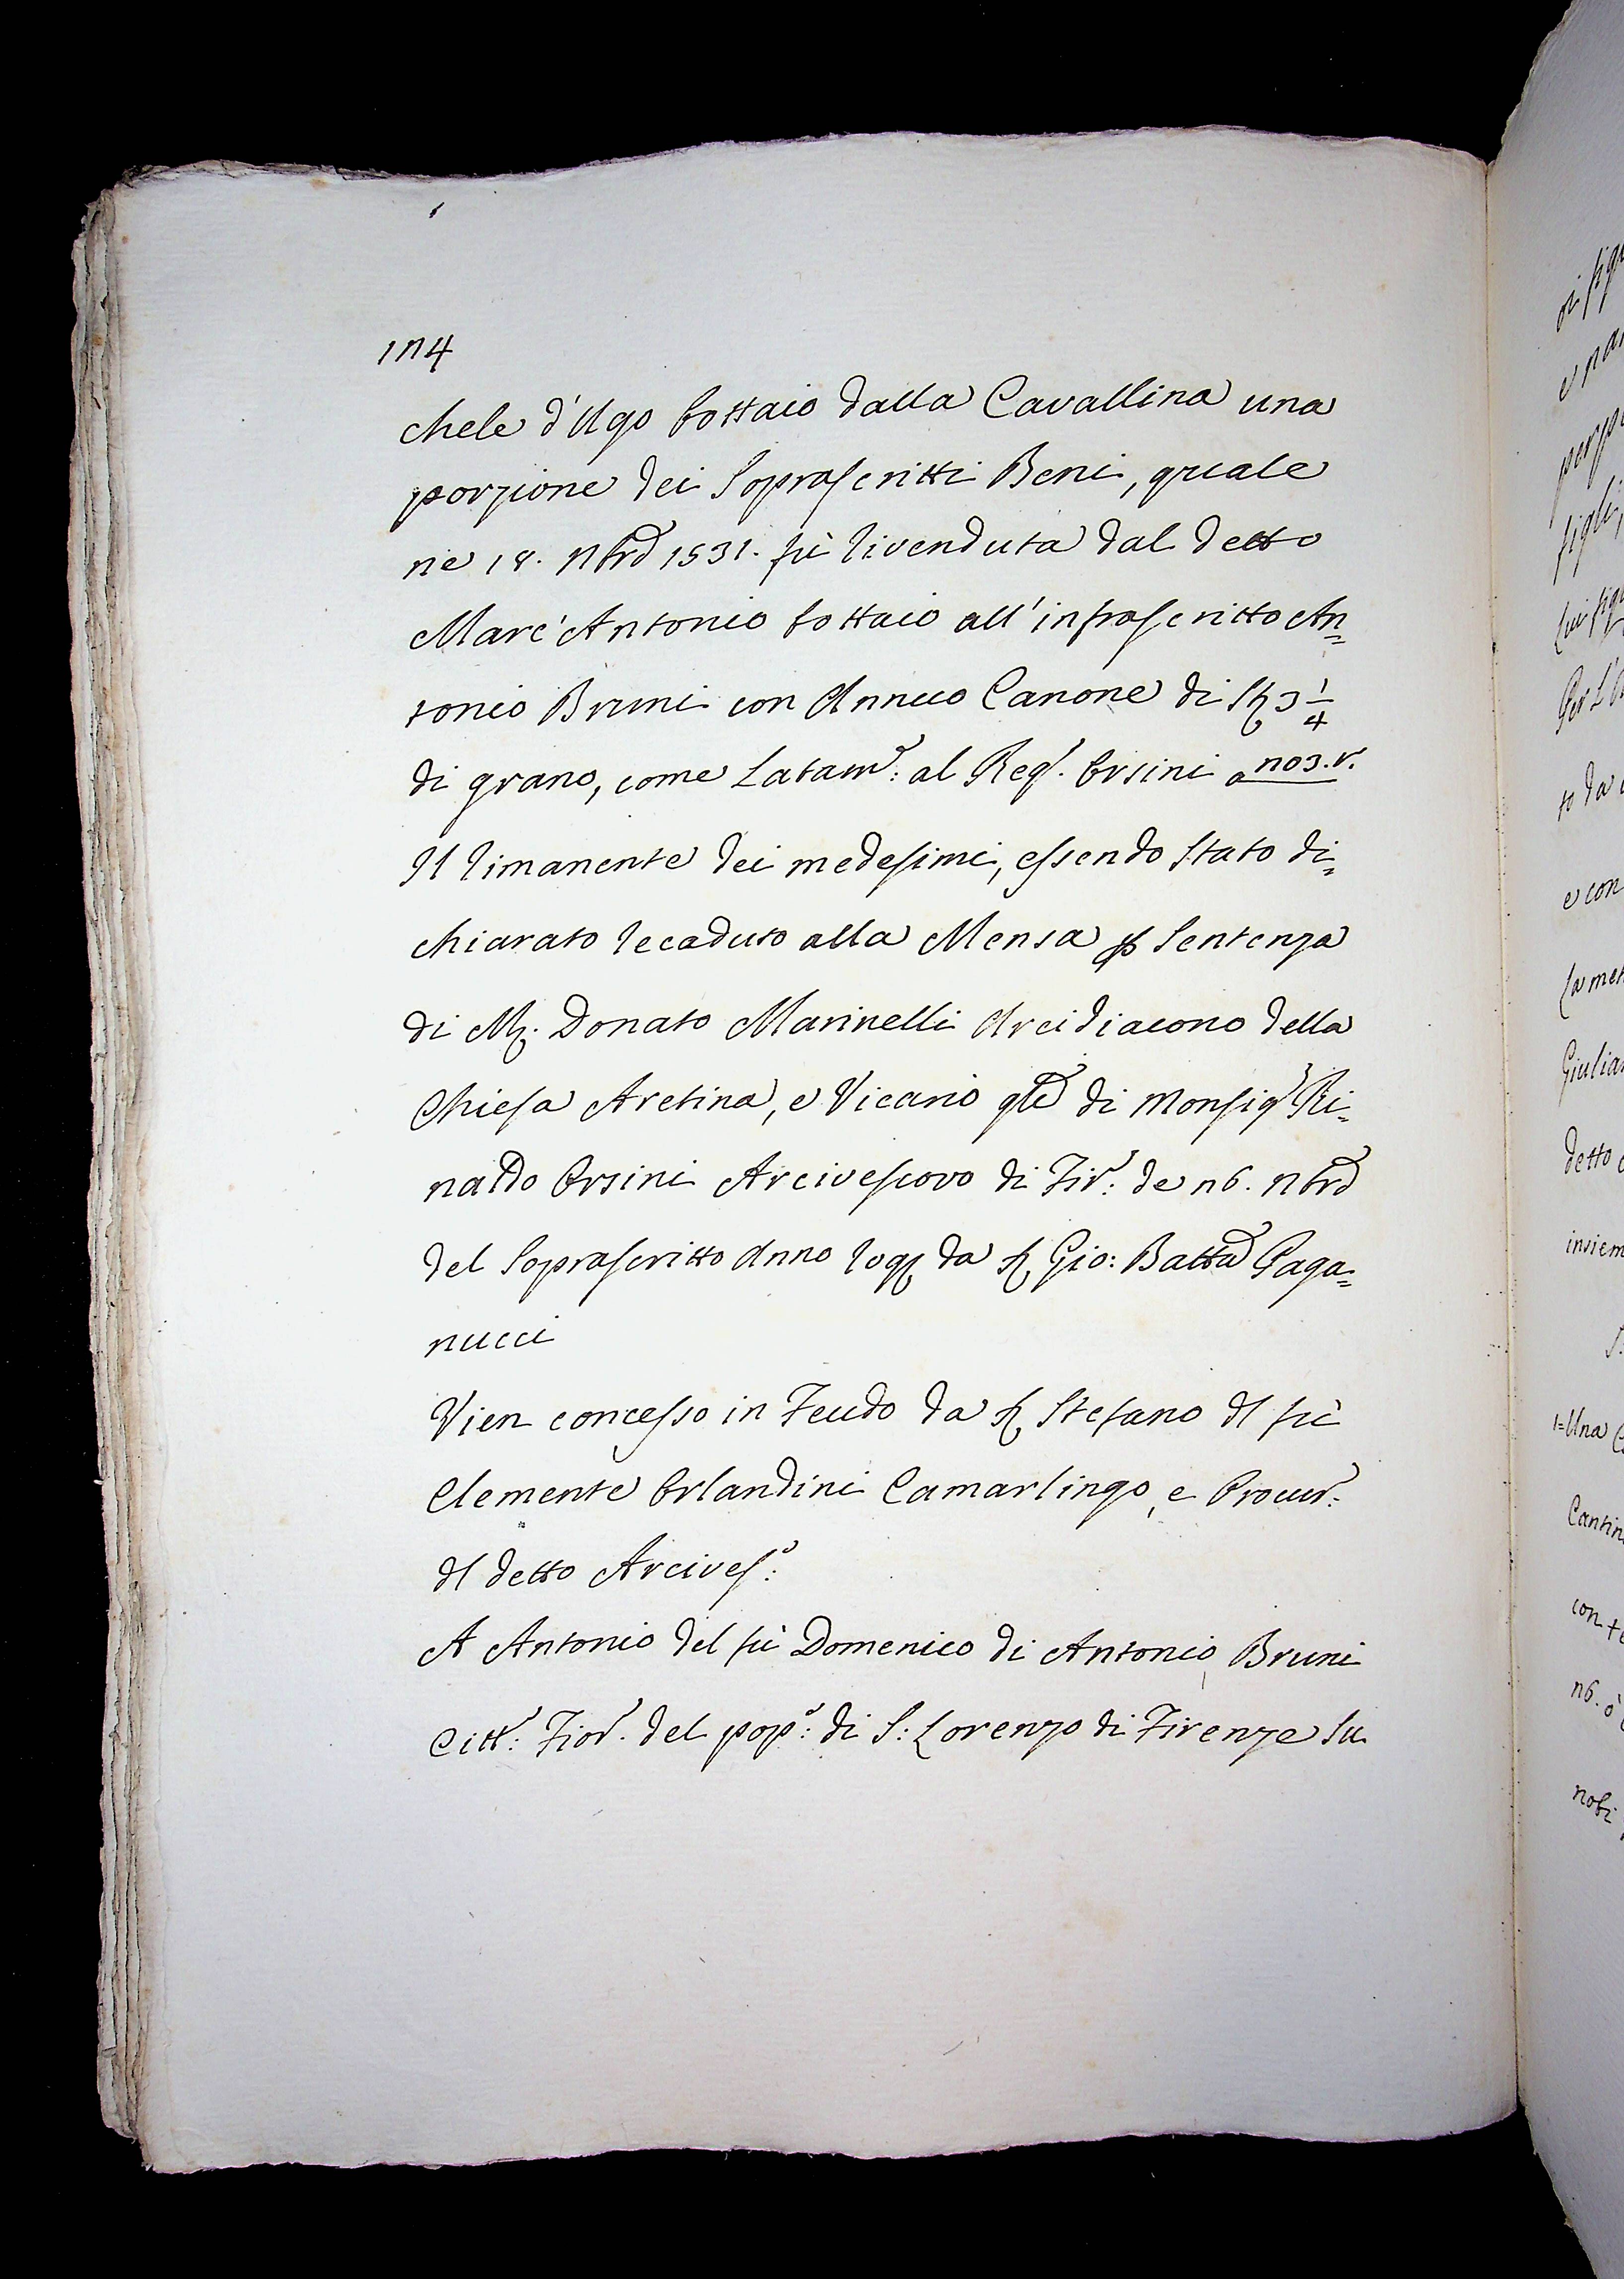 174
chele d'Ugo bottaio dalla Cavallina una
porzione dei Soprascritti Beni, quale
ne 18. Nbre 1531. fù rivenduta dal detto
Marc'Antonio bottaio all'infrascritto An=
tonio Bruni con Annuo Canone di St. 3 1/4
di grano, come latamr: al Reg. Orsini a 203. r.
Il rimanente dei medesimi, essendo stato di=
chiarato recaduto alla Mensa p Sentenza
di M. Donato Marinelli Arcidiacono della
Chiesa Aretina, e Vicario gle di Monsigr Ri=
naldo Orsini Arcivescovo di Fir: de 26. Nbre
del Soprascritto Anno rog. da S. Gio: Batta Paga=
nucci
Vien concesso in Feudo da S. Stefano dl fù
Clemente Orlandini Camarlingo, e Procur:
dl detto Arcives.o:
A Antonio del fù Domenico di Antonio Bruni
Citt.o: Fior.o del pop.o: di S: Lorenzo di Firenze su